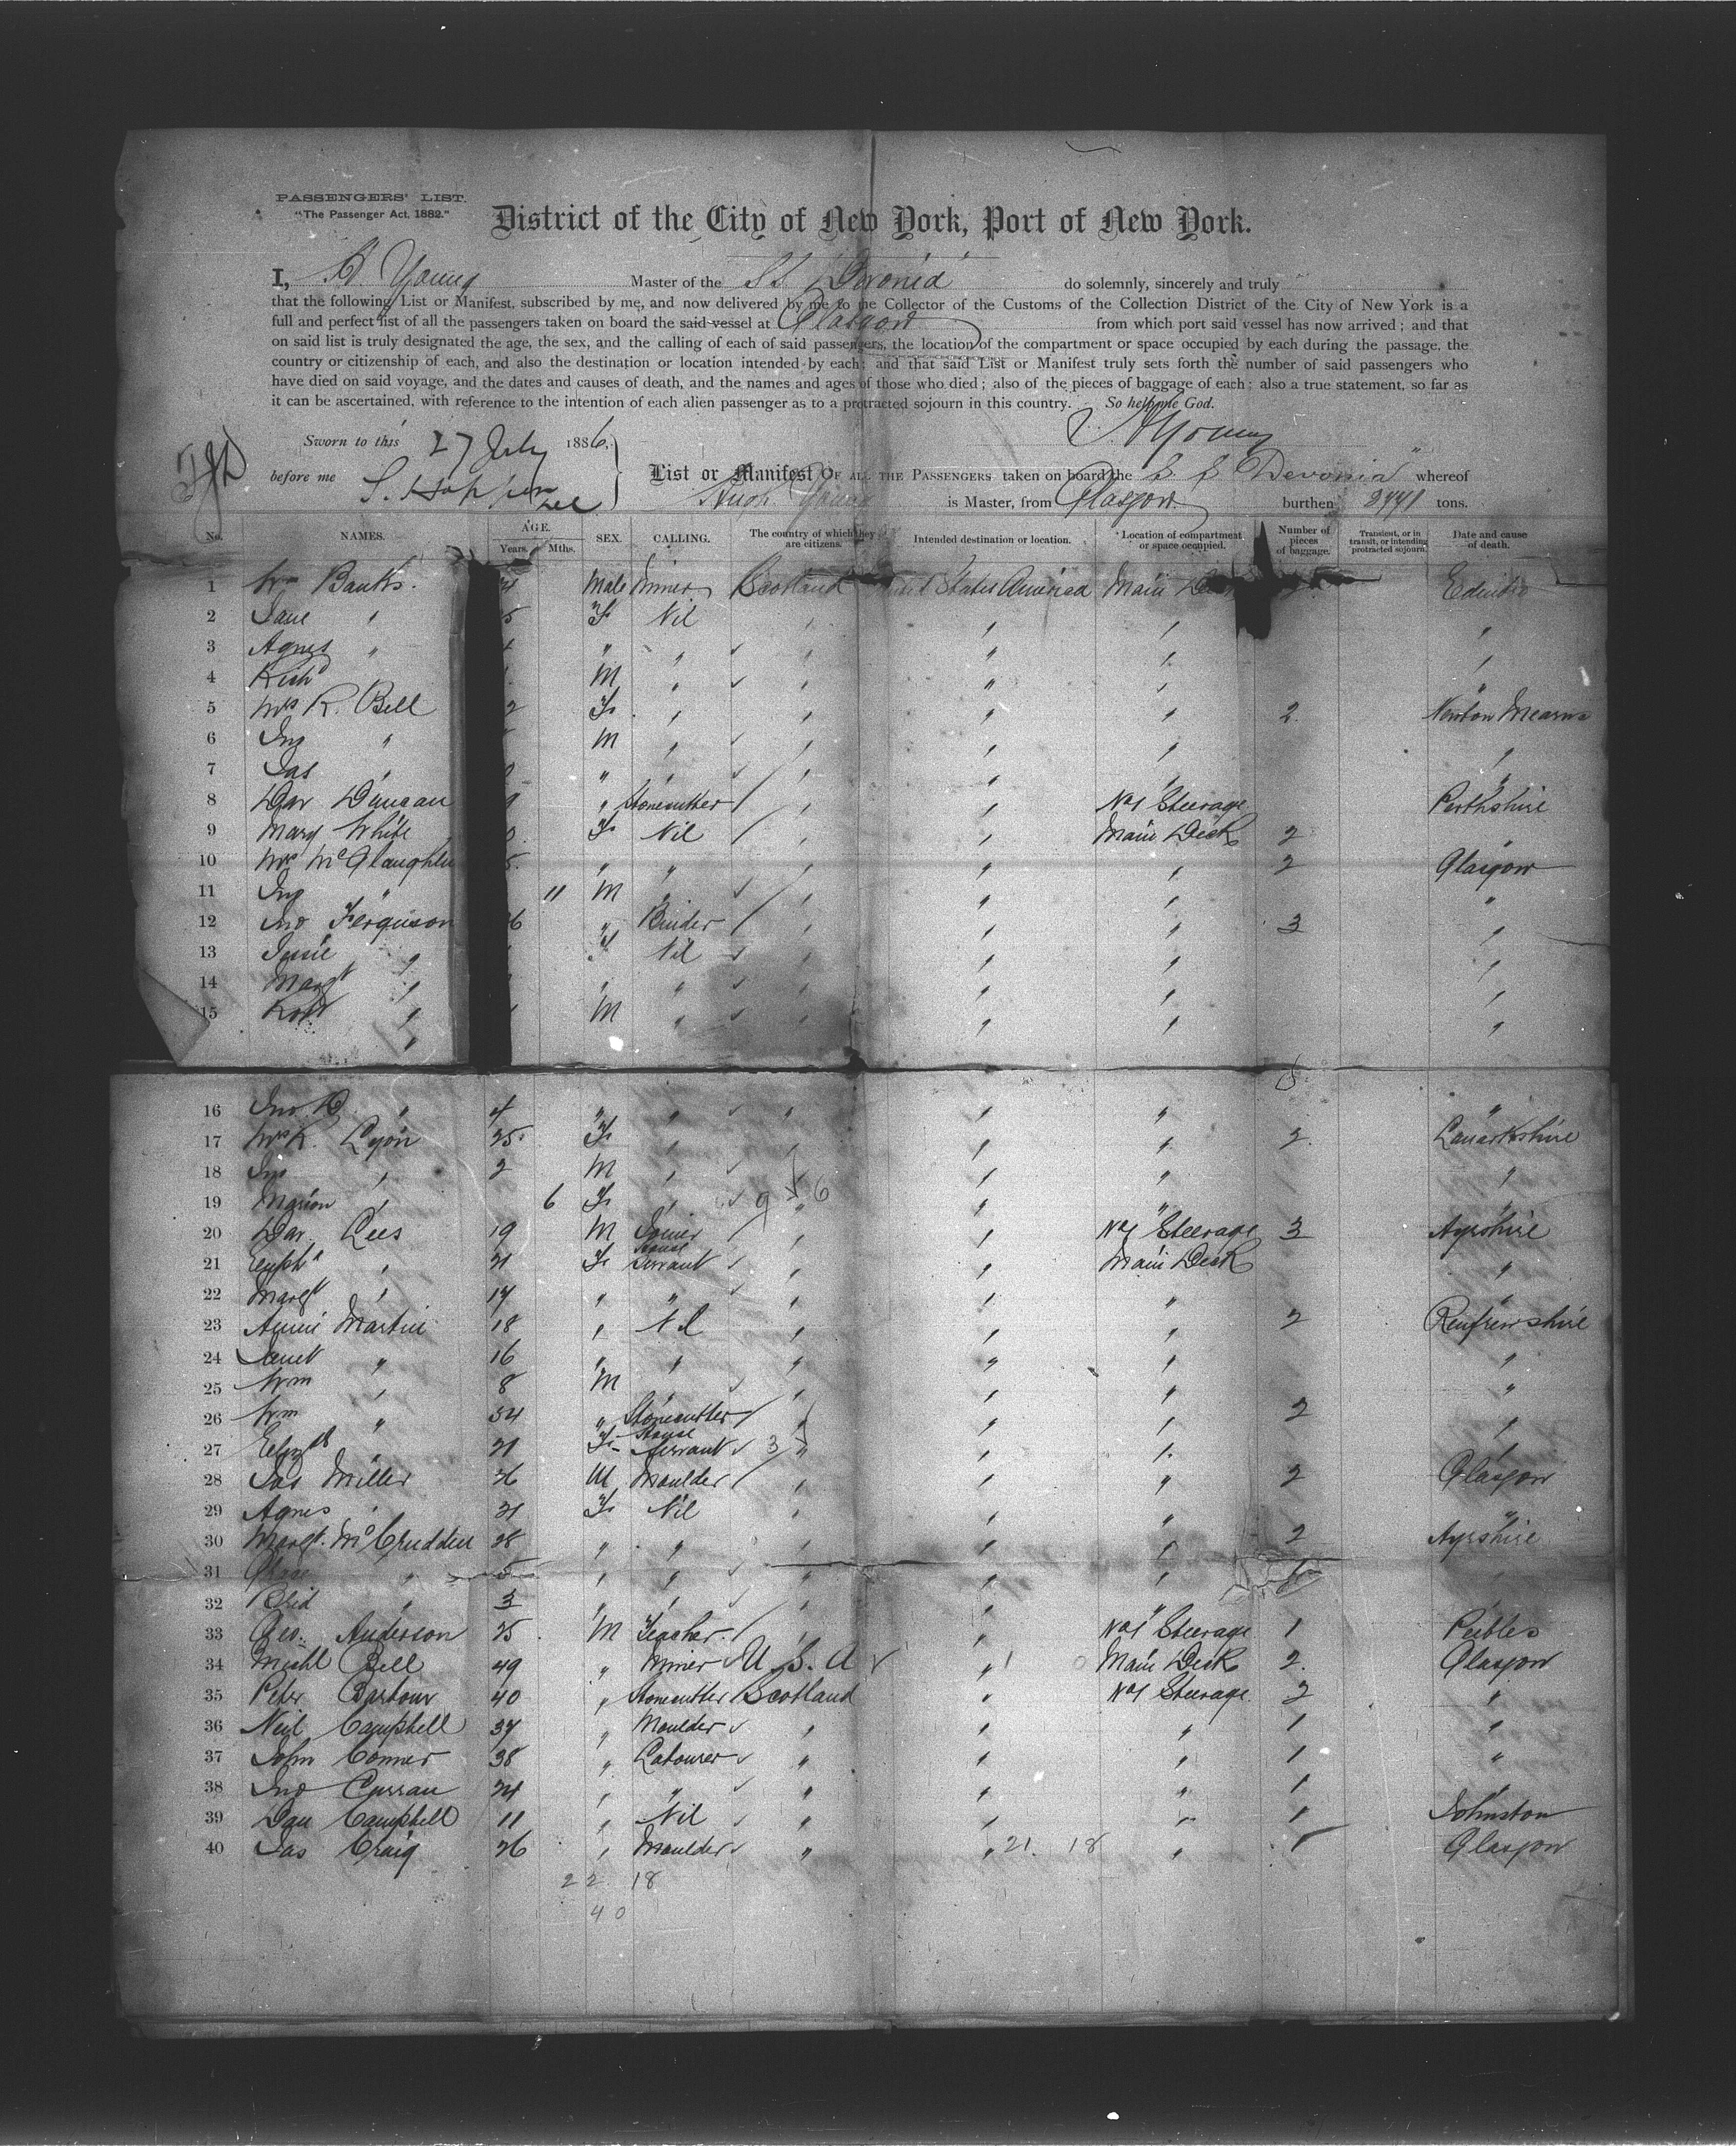 PASSENGERS' LIST.
"The Passenger Act, 1882."
District of the City of New York, Port of New York.
I, H. Young Master of the SS Devonia do solemnly, sincerely and truly
that the following List or Manifest, subscribed by me, and now delivered by me to the Collector of the Customs of the Collection District of the City of New York is a
full and perfect list of all the passengers taken on board the said vessel at Glasgow from which port said vessel has now arrived; and that
on said list is truly designated the age, the sex, and the calling of each of said passengers, the location of the compartment or space occupied by each during the passage, the
country or citizenship of each, and also the destination or location intended by each; and that said List or Manifest truly sets forth the number of said passengers who
have died on said voyage, and the dates and causes of death, and the names and ages of those who died; also of the pieces of baggage of each; also a true statement, so far as
it can be ascertained, with reference to the intention of each alien passenger as to a protracted sojourn in this country. So help me God.
Sworn to this 27 July 1886 H Young
before me
List or Manifest OF ALL THE PASSENGERS taken on board the S S Devonia" whereof
Hugh Young is Master, from Glasgow burthen tons.
No. NAMES. AGE. Years. Mths. SEX. CALLING. The country of which they are citizens. Intended destination or location. Location of compartment or space occupied. Number of pieces of baggage. Transient, or in transit, or intending protracted sojourn. Date and cause of death.
1 Wm Banks. 4 Male Miner Scotland States America Main Deck Edinbro
2 Jane " 5 F Nil " " " "
3 Agnes " " " " " " "
4 Richd M " " " " "
5 Mrs R. Bell 2 F " " " " 2. Newton Mearns
6 Jno " M " " " " "
7 Jas " " " " " " "
8 Dav Duncan 9 " Stonecutter " " No1 Steerage Perthshire
9 Mary White F Nil " " Main Deck 2 "
10 Mrs McGlaughlin 5. " " " " " 2 Glasgow
11 Jno " 11 M " " " " "
12 Jno Ferguson 6 " Binder " " " 3 "
13 Jessie " F Nil " " " "
14 Margt " " " " " " "
15 Robt " M " " " " "
16 Jno. " 4 " " " " " "
17 Mrs R. Lyon 25. F " " " " 2. Lanarkshire
18 Jno " 2 M " " " " "
19 Marion " 6 F " " " " "
20 Dav. Lees 19 M Joiner " " No1 Steerage 3 Ayrshire
21 Euph " 21 F House Servant " " Main Deck "
22 Margt " 17 " " " " " "
23 Annie Martin 18 " Nil " " " 2 Renfrewshire
24 Janet " 16 " " " " " "
25 Wm " 8 M " " " " "
26 Wm " 54 " Stonecutter " " " 2 "
27 Elizth " 21 F House Servant " " " "
28 Jas Miller 26 M Moulder " " " 2 Glasgow
29 Agnes " 21 F Nil " " " "
30 Margt. McCrudden 28 " " " " " 2 Ayrshire
31 " 5 " " " " "
32 " 3 " " " " "
33 Geo. Anderson 25 M Teacher. " " No1 Steerage 1 Peebles
34 Michl Bell 49 " Miner U. S. A " Main Deck 2. Glasgow
35 Peter Barbour 40 " Stonecutter Scotland " No1 Steerage 2 "
36 Neil Campbell 37 " Moulder " " " 1 "
37 John Conner 38 " Labourer " " " 1 "
38 Jno Curran 24 " " " " " 1 "
39 Dan Campbell 11 " Nil " " " 1 Johnston
40 Jas Craig 26 " Moulder " " 21. 18 " 1 Glasgow
22 18
40